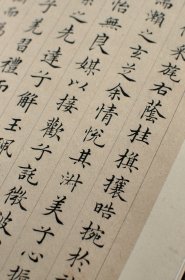 采旄右蔭桂旗攘皓捥於
瀨之玄芝余情悅其淑美兮心振
怡無良媒以接歡兮託微波
之先達兮解玉珮
羌習禮而